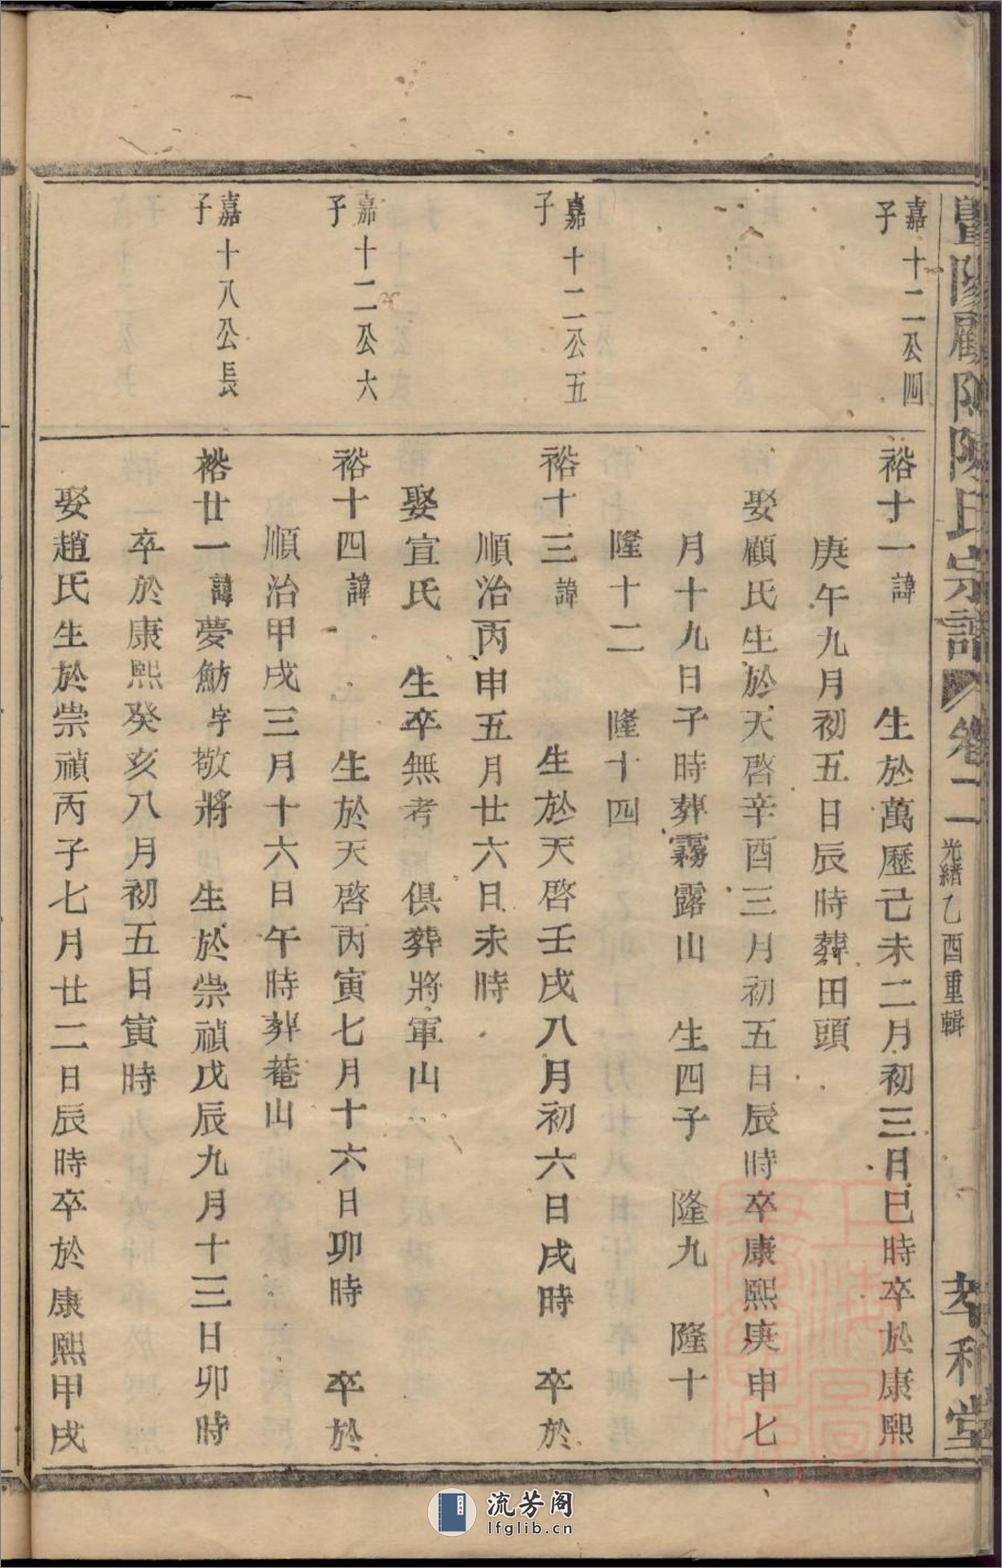 暨陽顧阧陳氏宗譜 卷二 光緒乙酉重輯 孝和堂
嘉十二公四子
裕十一 諱 生於萬歷己未二月初三日巳時卒於康熙
庚午九月初五日辰時葬田頭
娶顧氏生於天啓辛酉三月初五日辰時卒康熙庚申七
月十九日子時葬霧露山 生四子 隆九 隆十
隆十二 隆十四
嘉十二公五子
裕十三 諱 生於天啓壬戌八月初六日戌時 卒於
順治丙申五月廿六日未時
娶宣氏 生卒無考 俱葬將軍山
嘉十二公六子
裕十四 諱 生於天啓丙寅七月十六日卯時 卒於
順治甲戌三月十六日午時葬菴山
嘉十八公長子
裕廿一 諱夢魴字敬將 生於崇禎戊辰九月十三日卯時
卒於康熙癸亥八月初五日寅時
娶趙氏生於崇禎丙子七月廿二日辰時卒於康熙甲戌
流芳阁
lfglib.cn